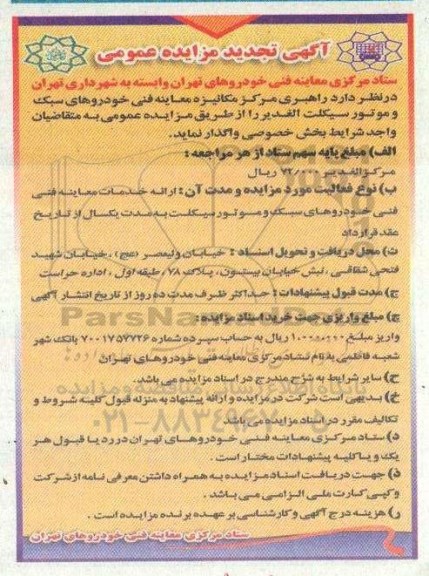 آگهی تجدید مزایده عمومی
ستاد مرکزی معاینه فنی خودروهای تهران وابسته به شهرداری تهران
در نظر دارد راهبری مرکز مکانیزه معاینه فنی خودروهای سبک
و موتور سیکلت الغدیر را از طریق مزایده عمومی به متقاضیان
واجد شرایط بخش خصوصی واگذار نماید.
الف) مبلغ پایه سهم ستاد از هر مراجعه :
مرکز الغدیر ریال
ب) نوع فعالیت مورد مزایده و مدت آن : ارائه خدمات معاینه فنی
فنی خودروهای سبک و موتور سیکلت به مدت یکسال از تاریخ
عقد قرارداد
ت) محل دریافت و تحویل اسناد : خیابان ولیعصر (عج) ، خیابان شهید
فتحی شقاقی ، نبش خیابان بیستون ، پلاک ۷۸ ، طبقه اول ، اداره حراست
ج) مدت قبول پیشنهادات : حداکثر ظرف مدت ده روز از تاریخ انتشار آگهی
چ) مبلغ واریزی جهت خرید اسناد مزایده :
واریز مبلغ ریال به حساب سپرده شماره ۷۰۰۱۷۵۷۷۲۶ بانک شهر
شعبه فاطمی به نام ستاد مرکزی معاینه فنی خودروهای تهران
ح) سایر شرایط به شرح مندرج در اسناد مزایده می باشد.
خ) بدیهی است شرکت در مزایده و ارائه پیشنهاد به منزله قبول کلیه شروط و
تکالیف مقرر در اسناد مزایده می باشد
د) ستاد مرکزی معاینه فنی خودروهای تهران در رد یا قبول هر
یک و یا کلیه پیشنهادات مختار است .
ذ) جهت دریافت اسناد مزایده به همراه داشتن معرفی نامه از شرکت
و کپی کارت ملی الزامی می باشد .
ر) هزینه درج آگهی و کارشناسی بر عهده برنده مزایده است .
ستاد مرکزی معاینه فنی خودروهای تهران
ParsNa
۰۲۱-۸۸۳۴۹۶۷۰-۵